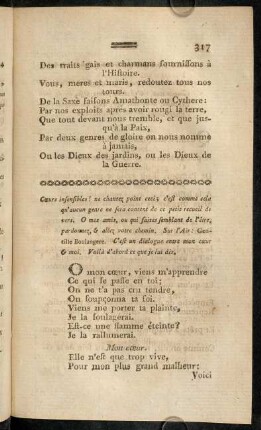 317
Des traits gais et charmans fournissons à
l'Histoire.
Vous, meres et maris, redoutez tous nos
tours.
De la Saxe faisons Amathonte ou Cythere:
Par nos exploits après avoir rougi la terre,
Que tout devant nous tremble, et que jus-
qu'à la Paix,
Par deux genres de gloire on nous nomme
à jamais,
Ou les Dieux des jardins, ou les Dieux de
la Guerre.
Cœurs insensibles! ne chantez point ceci; c'est comme cela
qu'aucun genre ne sera excepté de ce petit recueil de
vers. O mes amis, ou qui faites semblant de l'être,
pardonnez, & allez votre chemin. Sur l'Air:
tille Boulangere. C'est un dialogue entre mon cœur
& moi. Voilà d'abord ce que je lui dis.
O mon cœur, viens m'apprendre
Ce qui se passe en toi;
On ne t'a pas cru tendre,
On soupçonna ta foi.
Viens me porter ta plainte,
Je la soulagerai.
Est-ce une flamme éteinte?
Je la rallumerai.
Mon cœur.
Elle n'est que trop vive,
Pour mon plus grand malheur;
Voici